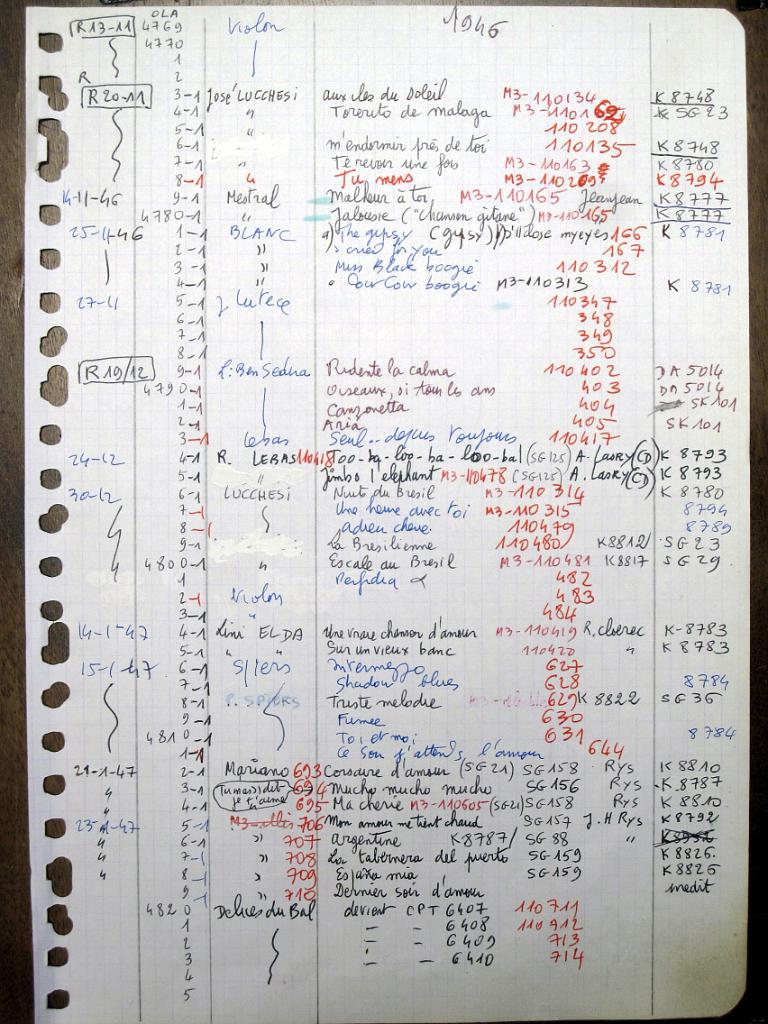 OLA 1946
R13-11 4769 Violon
4770
1
R 2
R 20-11 3-1 José LUCCHESI aux iles du Soleil M3-110134 K 8748
4-1 " Torerito de malaga M3-1101 SG 23
5-1 110208
6-1 m'endormir près de toi 110135 K 8748
7-1 " Te revoir une fois M3-110163 K 8780
8-1 " Tu mens M3-110209 K 8794
14-11-46 9-1 Mestral Malheur à toi M3-110165 Jeanjean K 8777
4780-1 " Jalousie ("chanson gitane") M3-110165 K 8777
25-11-46 1-1 BLANC a) The gypsy (gypsy) I'll close my eyes 166 K 8781
2-1 " I cried for you 167
3-1 " Miss Black boogie 110312
4-1 " Cour Cour boogie M3-110313 K 8781
27-11 5-1 J Lutece 110347
6-1 348
7-1 349
8-1 350
R 19/12 9-1 L: Ben Sedira Ridente la calma 110402 DA 5014
4790-1 Oiseaux, si tous les ans 403 DA 5014
1-1 Canzonetta 404 SK101
2-1 Aria 405 SK101
3-1 Lebas Seul.. depuis toujours 110417
24-12 4-1 R. LEBAS 110418 Too-ba-loo-ba-loo-bal (SG125) A. Lasry (C) K 8793
5-1 " Jimbo l'elephant M3-110478 (SG125) A. Lasry (C) K 8793
30-12 6-1 LUCCHESI Nuits du Bresil M3-110314 K 8780
7-1 Une heure avec toi M3-110315 8794
8-1 adieu cherie. 110479 8789
9-1 La Bresilienne 110480 K8812/ SG 23
4800-1 " Escale au Bresil M3-110481 K8817 SG 29
1 Perfidia 482
2-1 Violon 483
3-1 " 484
14-1-47 4-1 Lini ELDA Une vraie chanson d'amour M3-110419 R. cloerec K-8783
5-1 " " Sur un vieux banc 110420 " K 8783
15-1-47 6-1 Spiers Intermezzo 627
7-1 Shadow blues 628 8784
8-1 P. SPIERS Triste melodie M3- 629 K 8822 SG 36
9-1 Fumee 630
4810-1 Toi et moi 631 8784
1-1 Ce soir j'attends l'amour 644
21-1-47 2-1 Mariano 693 Corsaire d'amour (SG21) SG158 Rys K 8810
" 3-1 Tu m'as dit je t'aime 694 Mucho mucho mucho SG156 Rys K.8787
" 4-1 " 695 Ma cherie M3-110605 (SG21) SG158 Rys K 8810
23-1-47 5-1 706 Mon amour me tient chaud SG157 J.H Rys K8792
" 6-1 " 707 Argentine K8787/ SG 88 "
" 7-1 " 708 La tabernera del puerto SG159 K8826.
" 8-1 " 709 España mia SG159 K8826
9-1 " 710 Dernier soir d'amour inedit
4820 Delices du Bal devient CPT 6407 110711
1 – – 6408 110912
2 – – 6409 713
3 – – 6410 714
4
5